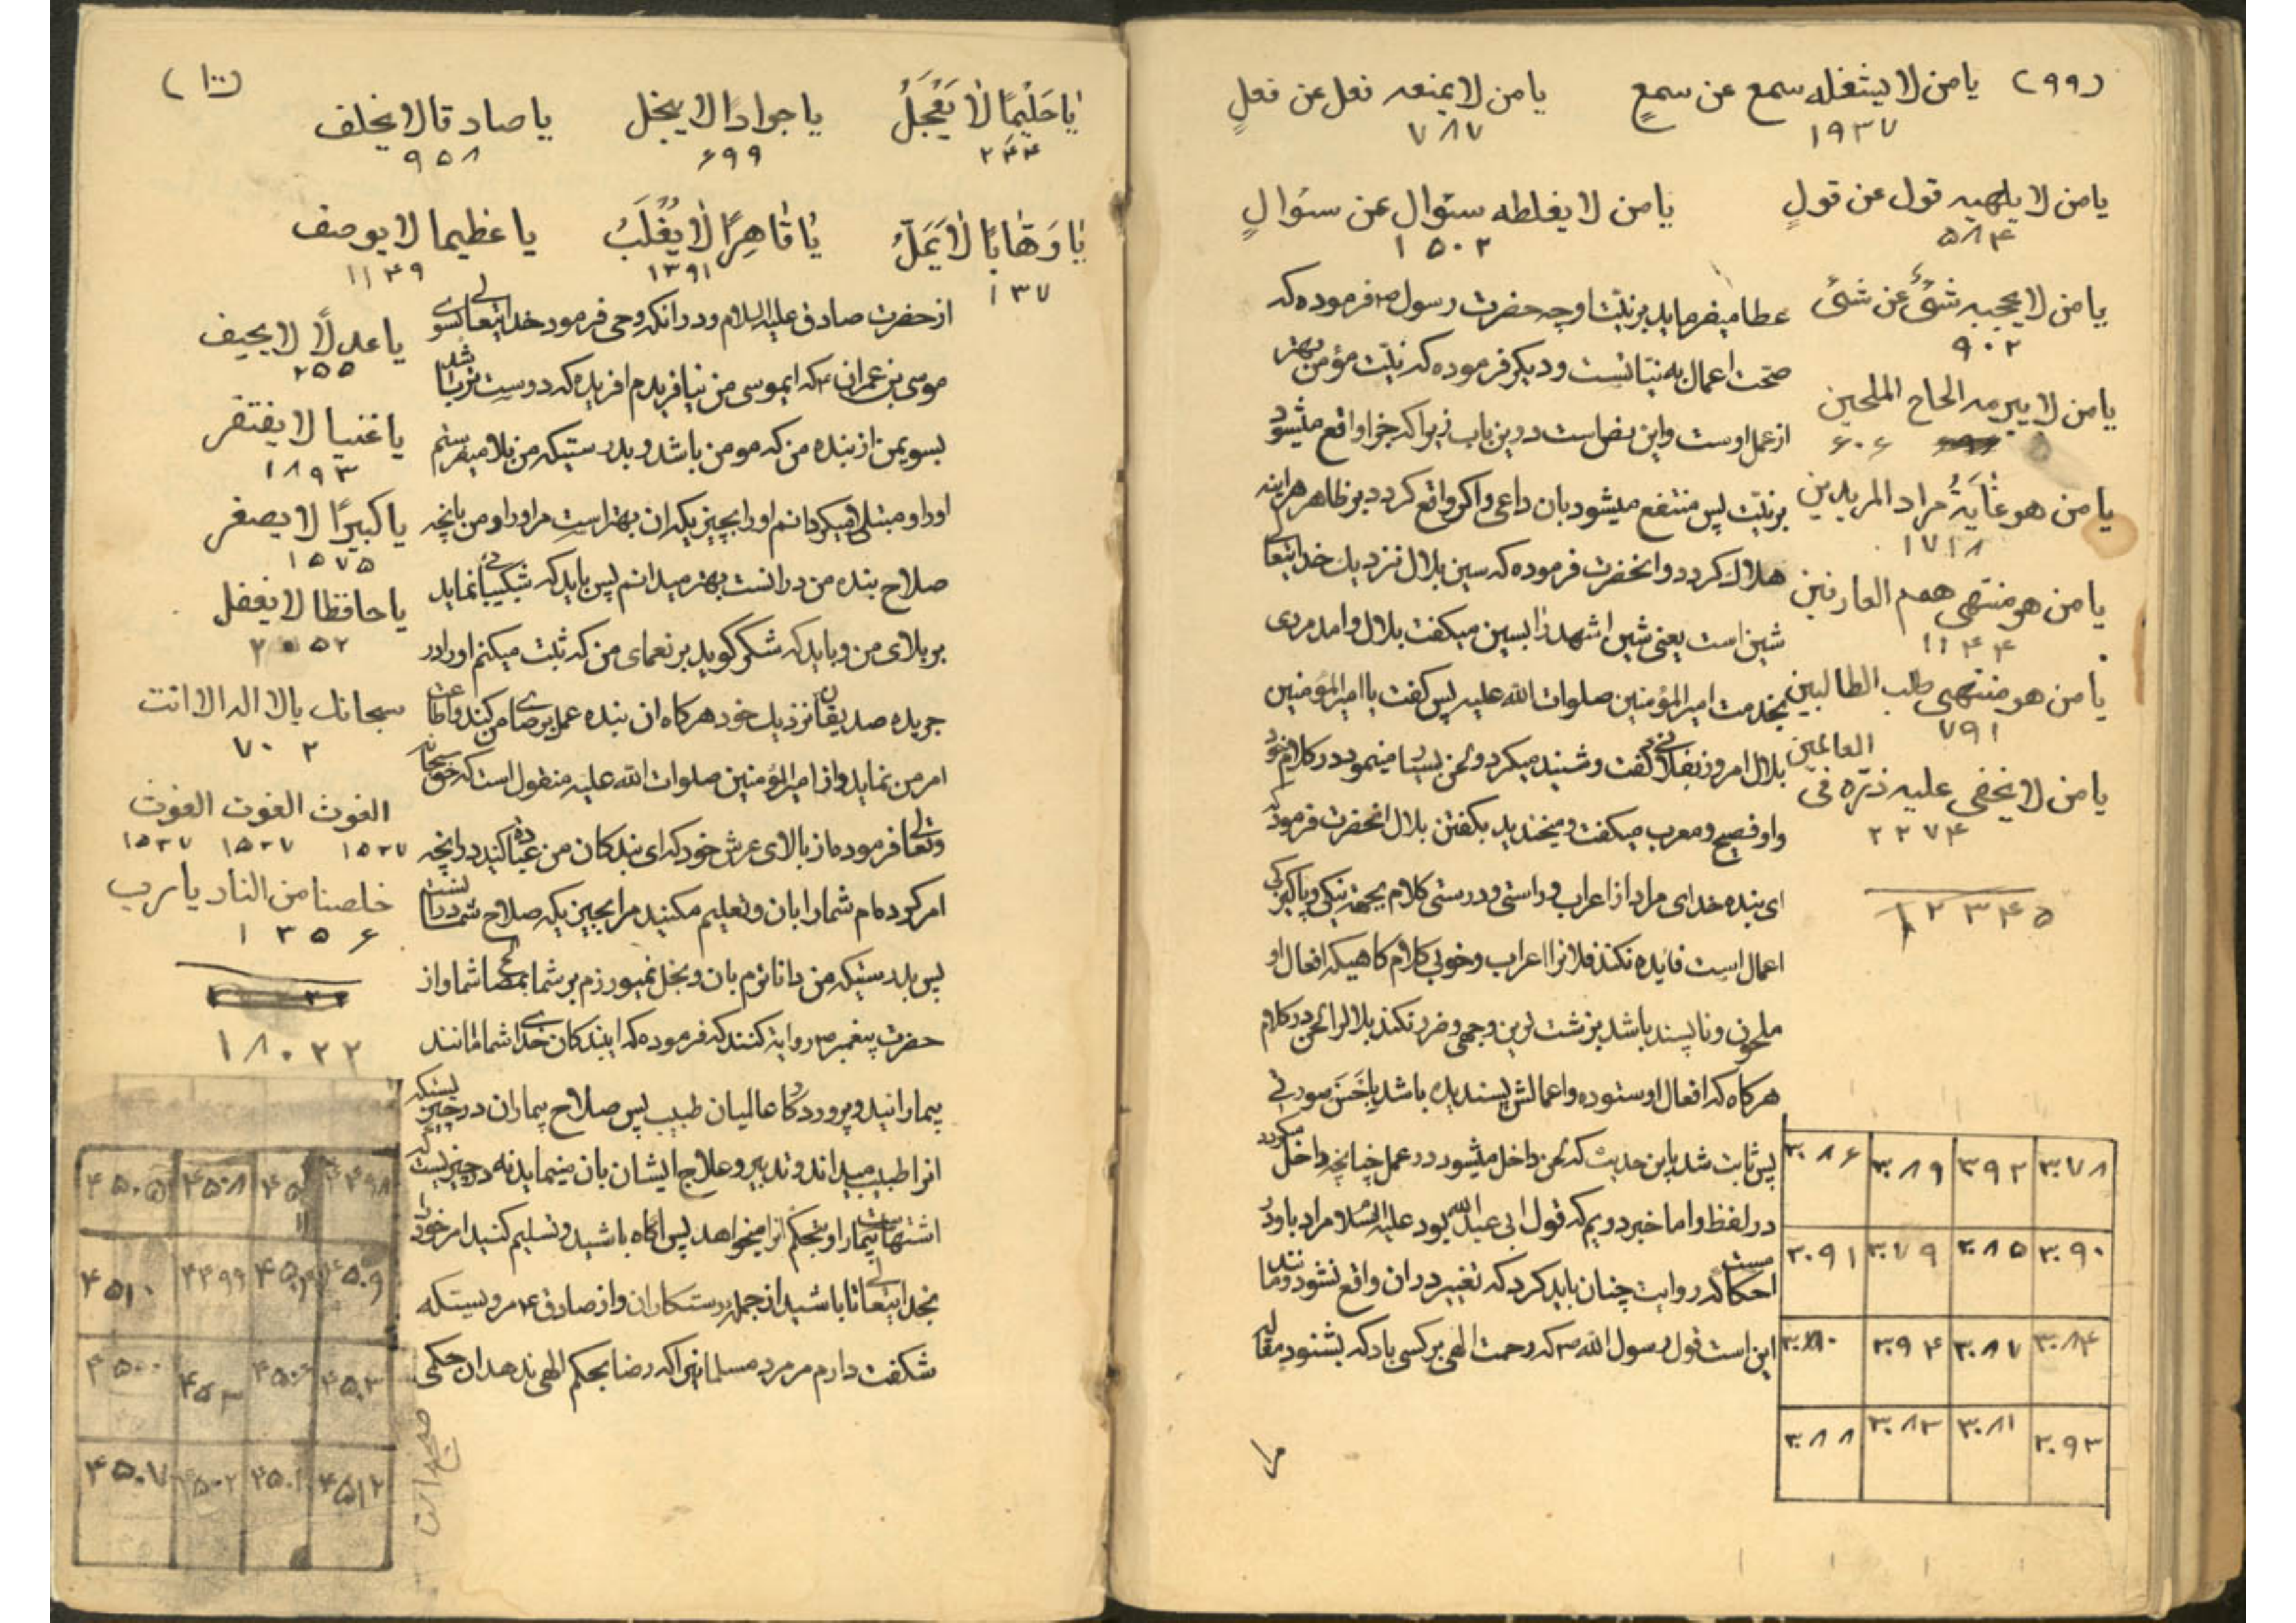 (۹۹)
یا من لا یشغله سمع عن سمعٍ
۱۹۳۷
یا من لا یمنعه فعل عن فعلٍ
۷۸۷
یا من لا یلهیه قول عن قولٍ
۵۸۴
یا من لا یغلطه سئوال عن سئوالٍ
۱۵۰۲
یا من لا یحجبه شئٌ عن شئ
۹۰۲
یا من لا یبرمه الحاح الملحین
۶۰۶
یا من هو غٰایَةُ مراد المریدین
۱۷۱۸
یا من هو منتهی همم العارفین
۱۱۴۴
یا من هو منتهی طلب الطالبین
۷۹۱
یا من لا یخفی علیه ذرّه فی العالمین
۲۲۷۴
۱۲۳۴۵
عطا میفرماید بر نیّت او چه حضرت رسول ص فرموده که
صحّت اعمال به نیّاتست و دیگر فرموده که نیّت مؤمن بهتر
از عمل اوست و این نص است درین باب زیرا که جزا واقع میشود
بر نیّت پس منتفع میشود بان داعی و اگر واقع گردد بر ظاهر هراینه
هلاک گردد و انحضرت فرموده که سین بلال نزدیک خدایتعالی
شین است یعنی شین اشهد را بسین میگفت بلال و امد مردی
بخدمت امیر المؤمنین صلوات الله علیه پس گفت یا امیر المؤمنین
بلال امروز بفلانی گفت و شنید میکرد و لحن بسیار مینمود در کلام خود
و او فصیح و معرب میگفت و میخندید بگفتن بلال انحضرت فرمود که
ای بنده خدای مراد از اعراب و راستی و درستی کلام بجهة نیکی و پاکیزگی
اعمال است فایده نکند فلانرا اعراب و خوبی کلام گاهیکه افعال او
ملحون و ناپسند باشد بزشت ترین وجهی و ضرر نکند بلالرا لحن در کلام
هرگاه که افعال او ستوده و اعمالش پسندیده باشد باحَسَن صورتی
پس ثابت شد باین حدیث که لحن داخل میشود در عمل چنانچه داخل میگردد
در لفظ و اما خبر دویم که قول ابی عبدالله بود علیه السّلام مراد باو در
روایت چنان باید کرد که تغییر در ان واقع نشود و مانند
این است قول رسول الله ص که رحمت الهی بر کسی باد که بشنود مقاله
۳۰۸۶ ۳۰۸۹ ۳۹۲ ۳۰۷۸
۳۰۹۱ ۳۰۷۹ ۳۰۸۵ ۳۰۹۰
۳۰۸۰ ۳۰۹۴ ۳۰۸۷ ۳۰۸۴
۳۰۸۸ ۳۰۸۳ ۳۰۸۱ ۳۰۹۳
مرا
(۱۰۰)
یٰا حَلیٖمًا لٰا یَعْجَلُ
۲۴۴
یا جوادًا لا یبخل
۶۹۹
یا صادقا لا یخلف
۹۵۸
یٰا وَهّٰابًا لٰا یَمَلُّ
۱۳۷
یٰا قٰاهِرًا لٰا یُغْلَبُ
۱۳۹۱
یا عظیما لا یوصف
۱۱۴۹
یا عدلًا لا یحیف
۲۵۵
یا غنیا لا یفتقر
۱۸۹۳
یا کبیرًا لا یصغر
۱۵۷۵
یا حافظا لا یغفل
۲۰۵۲
سبحانک یا لا اله الا انت
۷۰۲
الغوث الغوث الغوث
۱۵۳۷ ۱۵۳۷ ۱۵۳۷
خلصنا من النار یا رب
۱۳۵۶
۱۸۰۲۲
از حضرت صادق علیه السلام و در انکه وحی فرمود خدایتعالی بسوی
موسی بن عمران ع که ایموسی من نیافریدم افریده که دوست تر باشد
بسوی من از بنده من که مومن باشد و بدرستیکه من بلا میفرستم
او را و مبتلا میگردانم او را بچیزیکه ان بهتر است مر او را و من بانچه
صلاح بنده من در انست بهتر میدانم پس باید که شکیبائی نماید
بر بلای من و باید که شکر گوید بر نعمای من که ثبت میکنم او را در
جریده صدیقان نزدیک خود هرگاه ان بنده عمل برضای من کند و اطاعت
امر من نماید و از امیر المؤمنین صلوات الله علیه منقول است که حق سبحانه
و تعالی فرموده از بالای عرش خود که ای بندگان من عبادة کنید در انچه
امر کرده ام شما را بان و تعلیم مکنید مرا بچیزیکه صلاح شما در انست
پس بدرستیکه من داناترم بان و بخل نمیورزم بر شما بمصالح شما و از
حضرت پیغمبر ص روایة کنند که فرموده که ایبندگان خدای شما مانند
بیمارانید و پروردگار عالمیان طبیب پس صلاح بیماران در چیزیستکه
انرا طبیب میداند و تدبیر و علاج ایشان بان مینماید نه در چیزیست که
اشتهای بیمار است و بتحکم انرا میخواهد پس اگاه باشید و تسلیم کنید امر خود را
بخدایتعالی تا باشید از جمله رستکاران و از صادق ع مرویستکه
شکفت دارم مر مرد مسلمانیرا که رضا بحکم الهی ندهد ان حکمی
۴۵۰۵ ۴۵۰۸ ۴۵۱۱ ۴۴۹۸
۴۵۱۰ ۴۴۹۹ ۴۵۰۴ ۴۵۰۹
۴۵۰۰ ۴۵۱۳ ۴۵۰۶ ۴۵۰۳
۴۵۰۷ ۴۵۰۲ ۴۵۰۱ ۴۵۱۲